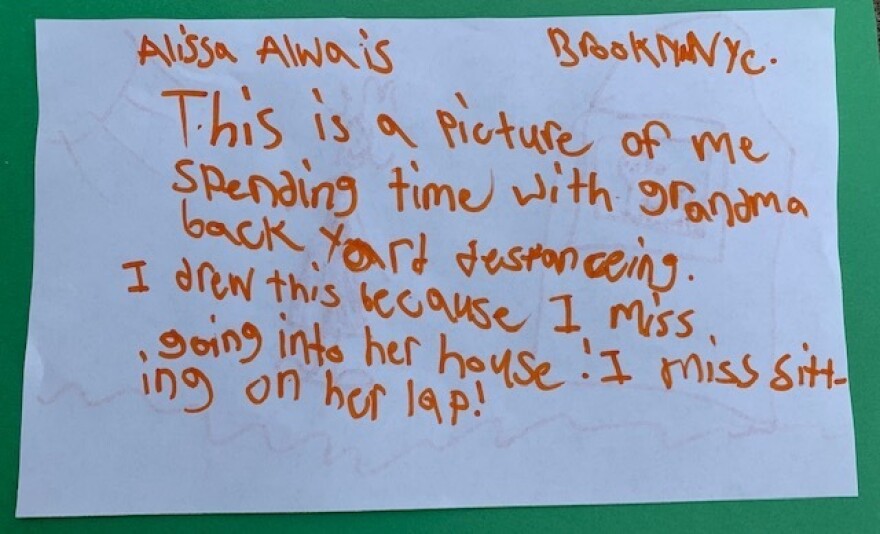 Alissa Alwais Brooklyn NYc.
This is a picture of me
spending time with grandma
back yard destanceing.
I drew this because I miss
going into her house! I miss sitt-
ing on her lap!